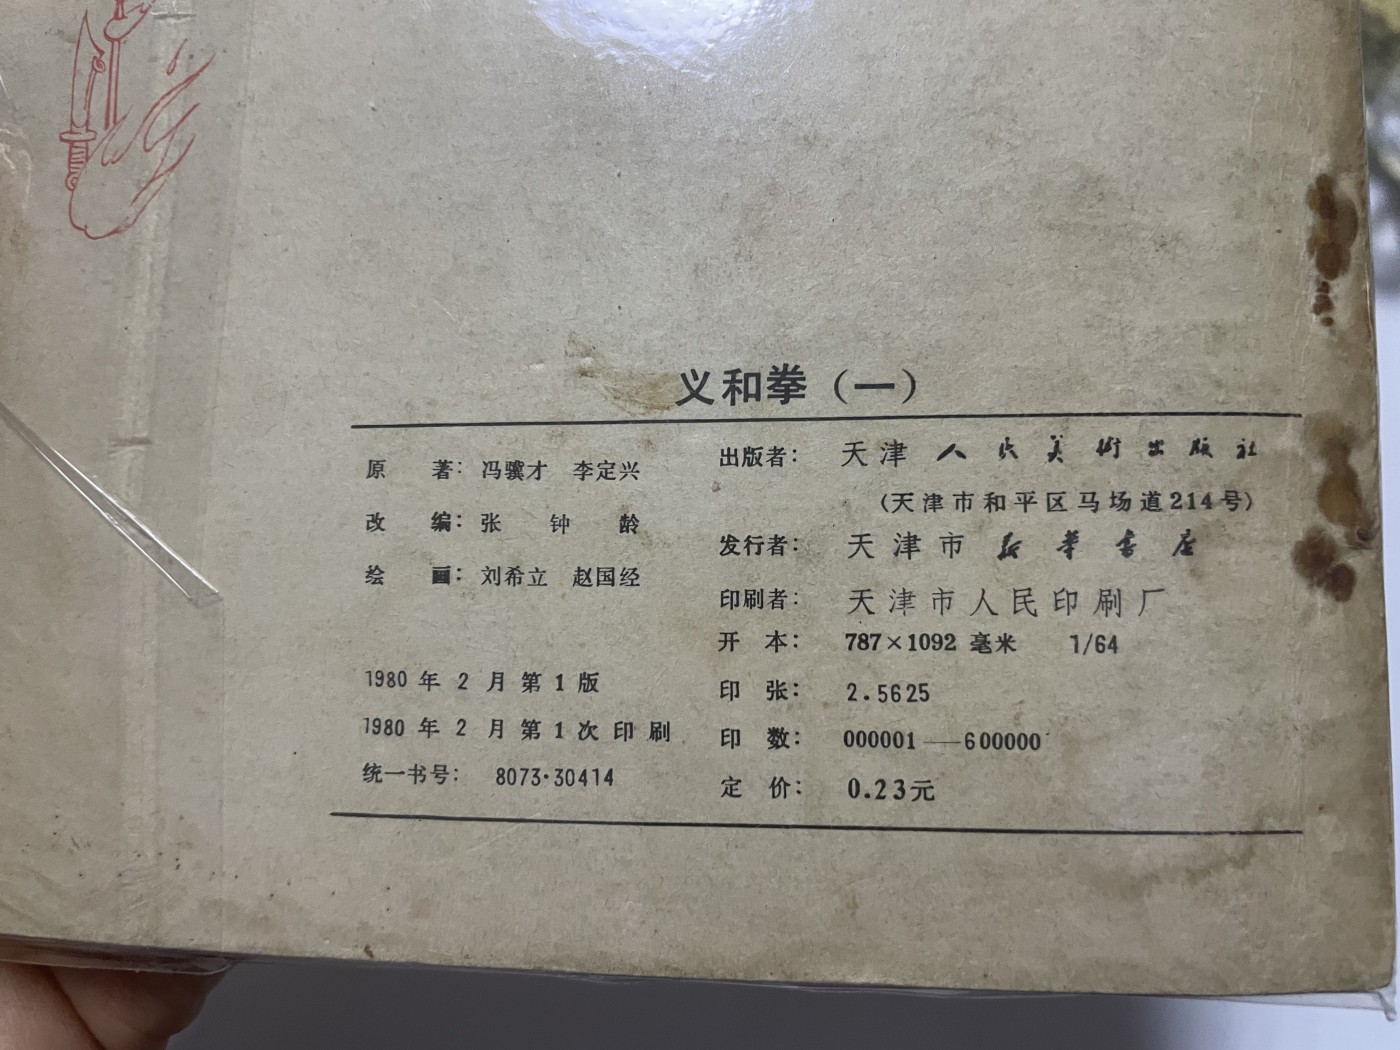 义和拳（一）
原 著：冯骥才 李定兴
改 编：张 钟 龄
绘 画：刘希立 赵国经
1980年2月第1版
1980年2月第1次印刷
统一书号： 8073·30414
出版者： 天津人民美术出版社
（天津市和平区马场道214号）
发行者： 天津市新华书店
印刷者： 天津市人民印刷厂
开 本： 787×1092 毫米 1/64
印 张： 2.5625
印 数： 000001——600000
定 价： 0.23元